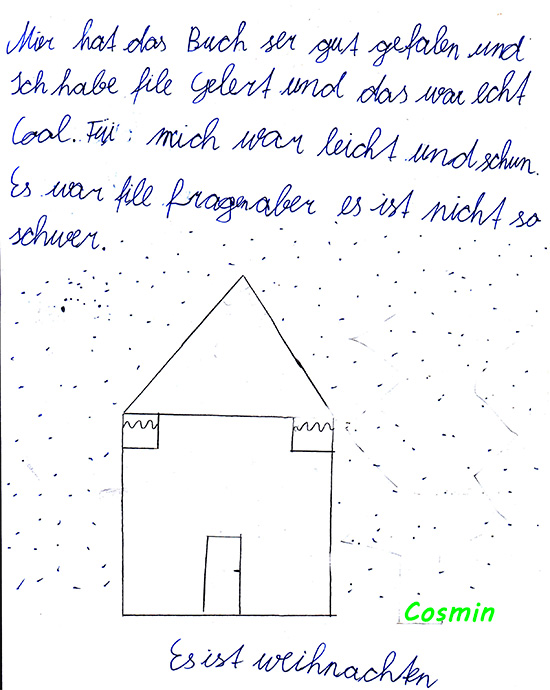 Mier hat das Buch ser gut gefalen und
Ich habe file Gelert und das war echt
Coal. Für: mich war leicht und schun.
Es war file fragen aber es ist nicht so
schwer.
Cosmin
Es ist weihnachten